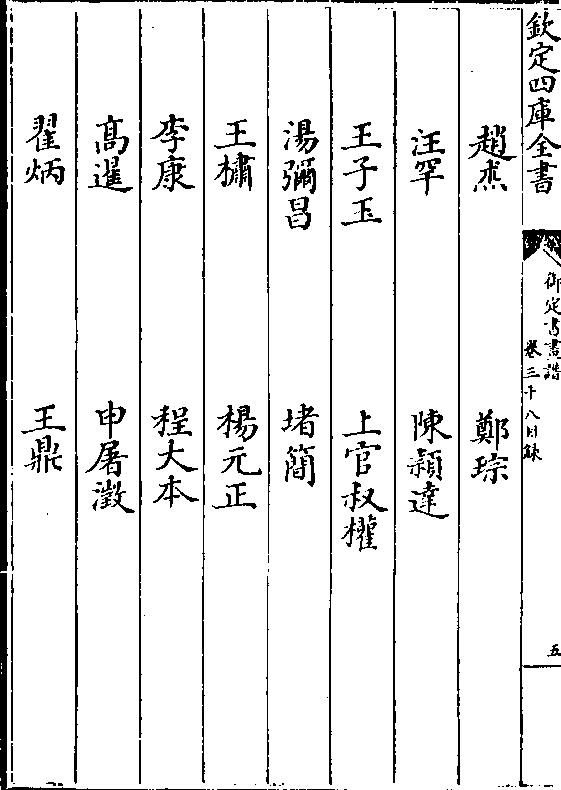 欽定四庫全書
御定書畫譜
卷三十八目録
五
趙𤋮 鄭琮
汪罕 陳穎達
王子玉 上官叔權
湯彌昌 堵簡
王橚 楊元正
李康 程大本
高暹 申屠澂
翟炳 王鼎